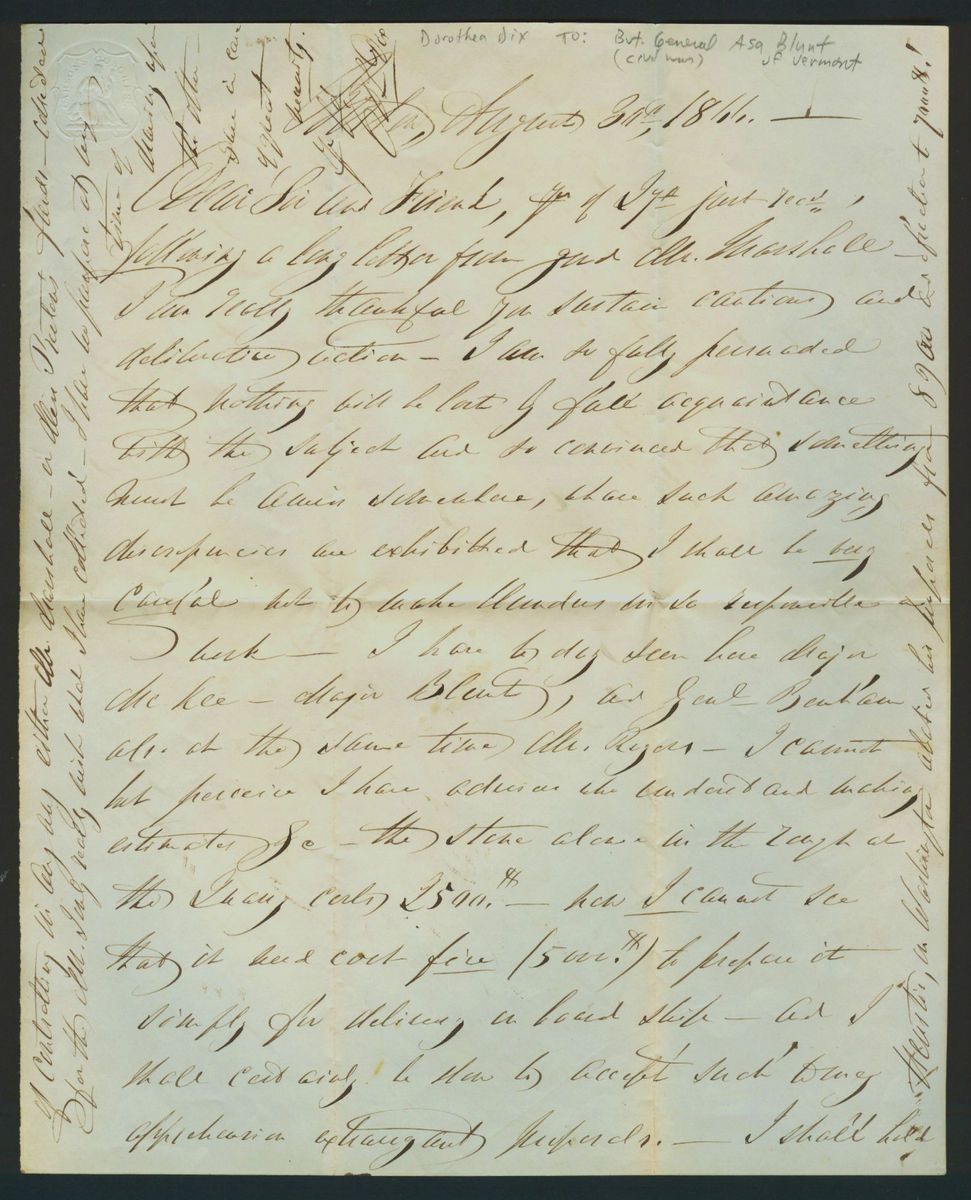 Dorothea Dix TO: Bvt. General Asa Blunt
(civil war) of Vermont
August 31st, 1866. —
Dear Sir and Friend, yrs of 27th just recd,
following a long letter from good Mr. Marshall
I am really thankful you sustain cautious and
deliberative action — I am so fully persuaded
that nothing will be lost by full acquaintance
with the subject and so convinced that something
must be amiss somewhere, where such amazing
discrepancies are exhibited that I shall be very
careful not to make blunders in so responsible a
work — I have to day seen here Major
McKee — Major Blunt, and Genl Benham
also at the same time Mr. Rogers — I cannot
but perceive I have advisers who understand making
estimates &c — the stone alone in the rough at
the Quarry costs 2500.$ — now I cannot see
that it need cost five (5000.$) to prepare it
simply for delivery on board ship — and I
shall certainly be slow to accept such to my
apprehension extravagant proposals. — I shall hold
of contracting in any way either Mr. Marshall — or Allen
for the
I really wish what I have collected
time of
at the
place in case
of great
necessity.
in Washington
his proposals
8900